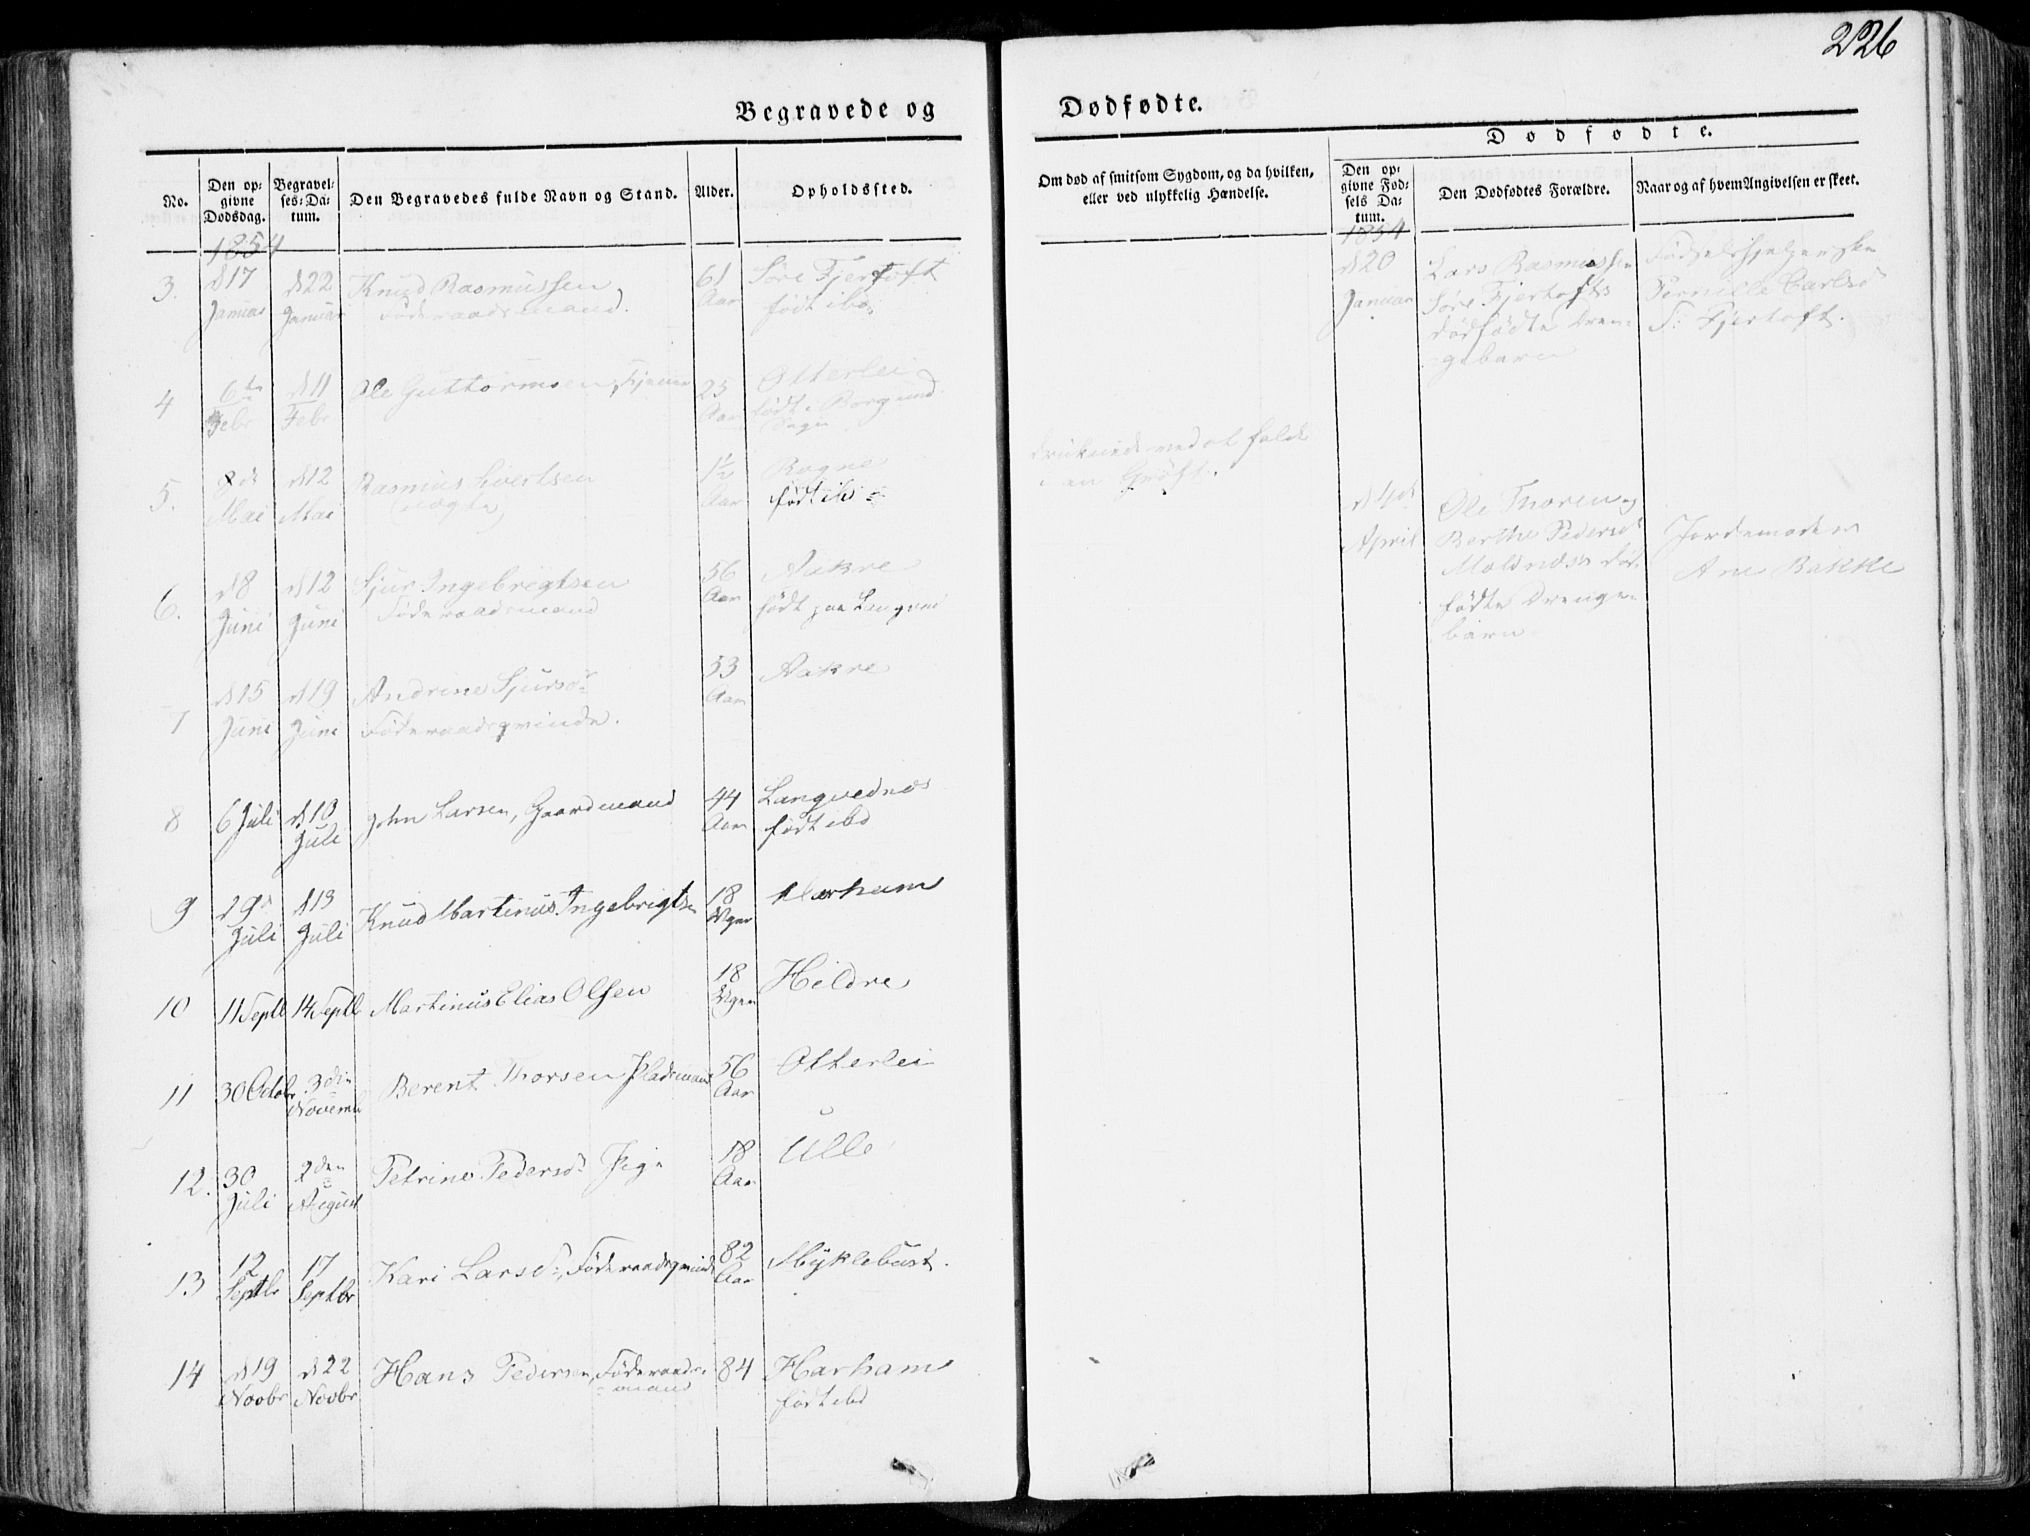 226
Begravede og
Dødfødte.
No.
Den opgivne Dødsdag.
Begravelses-Datum.
Den Begravedes fulde Navn og Stand.
Alder.
Opholdssted.
Om død af smitsom Sygdom, og da hvilken,
eller ved ulykkelig Hændelse.
Dødfødte.
Den opgivne Fødsels Datum.
Den Dødfødtes Forældre.
Naar og af hvem Angivelsen er skeet.
1854
3. d 17 Januar
d 22 Januar
Knud Rasmussen
Føderaadsmand.
61 Aar
Søre Fjertoft
født ibd
4 6te Febr
d 11 Febr
Ole Guttormsen,
25 Aar
Otterlei
født i Borgund
Sogn
5. 8de Mai
d 12 Mai
Rasmus Evertsen
1½ Aar
Rogne
født ibd
druknede ved at falde
i en Grøft.
6. d 8 Juni
d 12 Juni
Sjur Ingebrigtsen
Føderaadsmand
56 Aar
Aakre
født paa
7 d 15 Juni
d 19 Juni
Andrine Sjursdr
Føderaadsqvinde.
53 Aar
Aakre
8 6 Juli
d 10 Juli
John Larsen, Gaardmand
44 Aar
Langvednes
født ibd
9 d 9d Juli
d 13 Juli
Knud Martinus Ingebrigtsen
18 Uger
Harham
10 11 Septb
14 Septb
Martinus Elias Olsen
18 Uger
Hildre
11 30 Octobr
3die Novemb
Berent Thorsen Pladsmand
56 Aar
Otterlei
12. 30 Juli
2den August
Petrine Pedersd Pige
18 Aar
Ulle
13 12 Septbr
17 Septbr
Kari Larsd:, Føderaadsqvinde
82 Aar
Myklebust.
14 d 19 Novbr
d 22 Novbr
Hans Pedersen, Føderaads-
mand
84
Harham
født ibd
1854
d 20 Januar
Lars Rasmussen
Søre Fjertofts
dødfødte Dren-
gebarn
Fødselshjelpersken
Pernille Carlsd
S: Fjertoft.
d 4de April
Ole Thoresen og
Berthe Pedersd
Molnes's død-
fødte Drenge-
barn
Jordemoderen
Ane Bakke